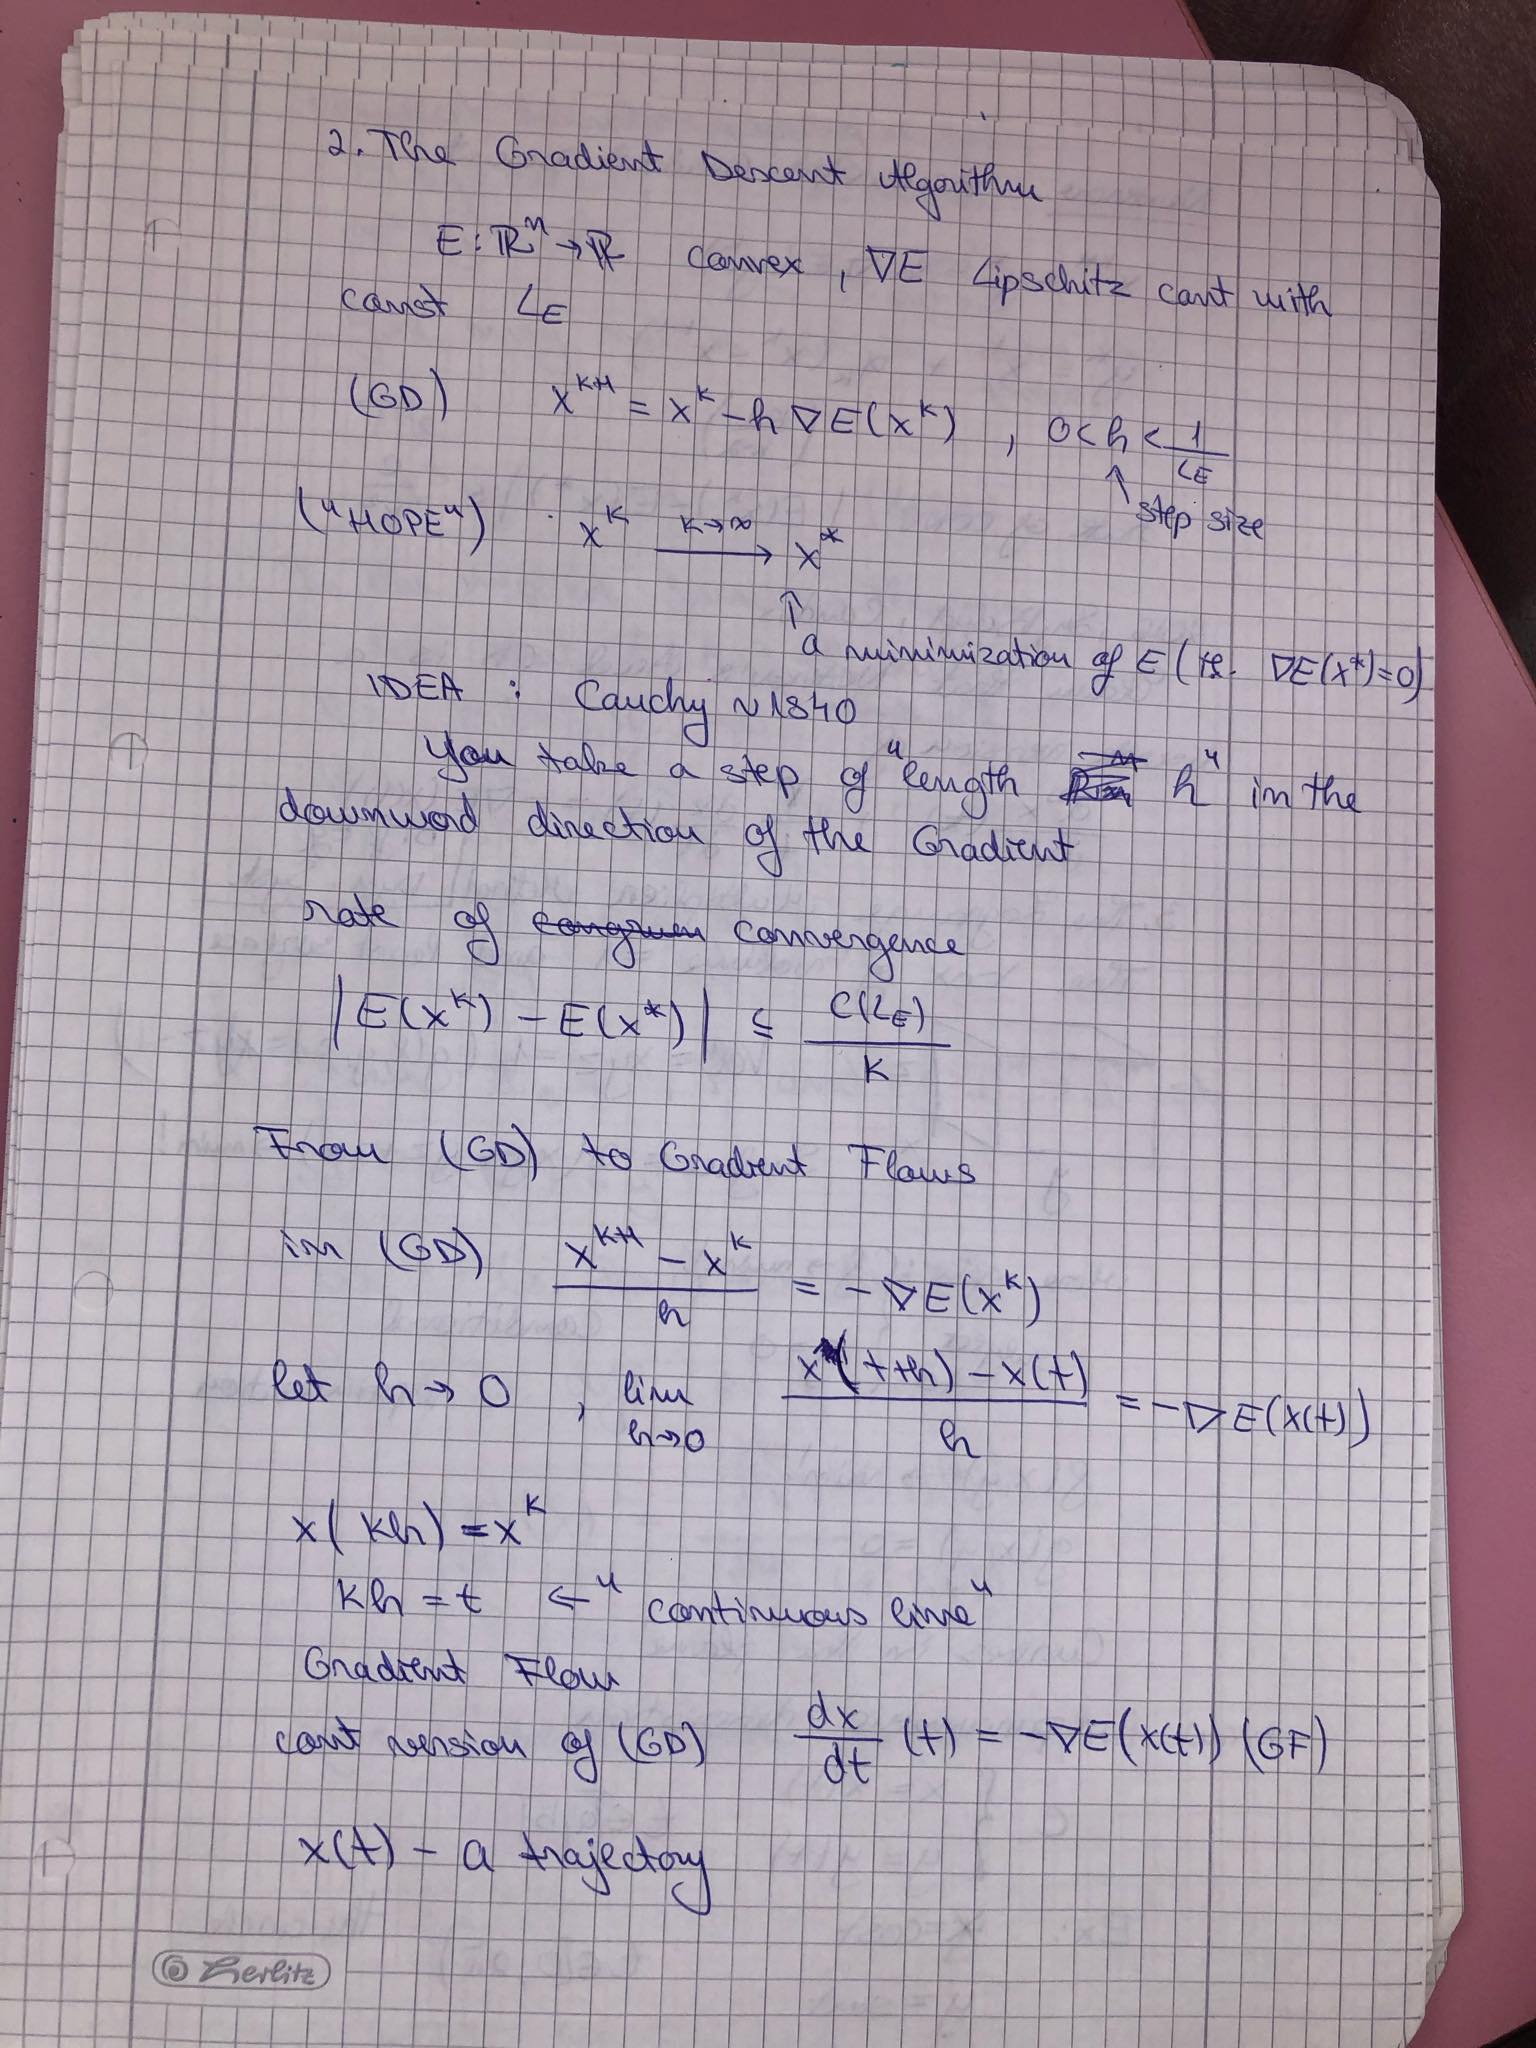 2. The Gradient Descent Algorithm
E: ℝⁿ → ℝ convex, ∇E Lipschitz cont with
const L_E
(GD) x^{k+1} = x^k - h ∇E(x^k), 0 < h < 1/L_E
↑ step size
("HOPE") x^k \xrightarrow{k→∞} x^*
↑
a minimization of E ( ∇E(x^*)=0)
IDEA : Cauchy ~1840
You take a step of "length h" in the
downword direction of the Gradient
rate of convergence
|E(x^k) - E(x^*)| ≤ C(L_E)/k
From (GD) to Gradient Flows
in (GD) (x^{k+1} - x^k)/h = -∇E(x^k)
let h → 0, lim_{h→0} (x(t+h) - x(t))/h = -∇E(x(t))
x(kh) = x^k
kh = t ← "continuous time"
Gradient Flow
cont version of (GD) dx/dt (t) = -∇E(x(t)) (GF)
x(t) - a trajectory
Herlitz